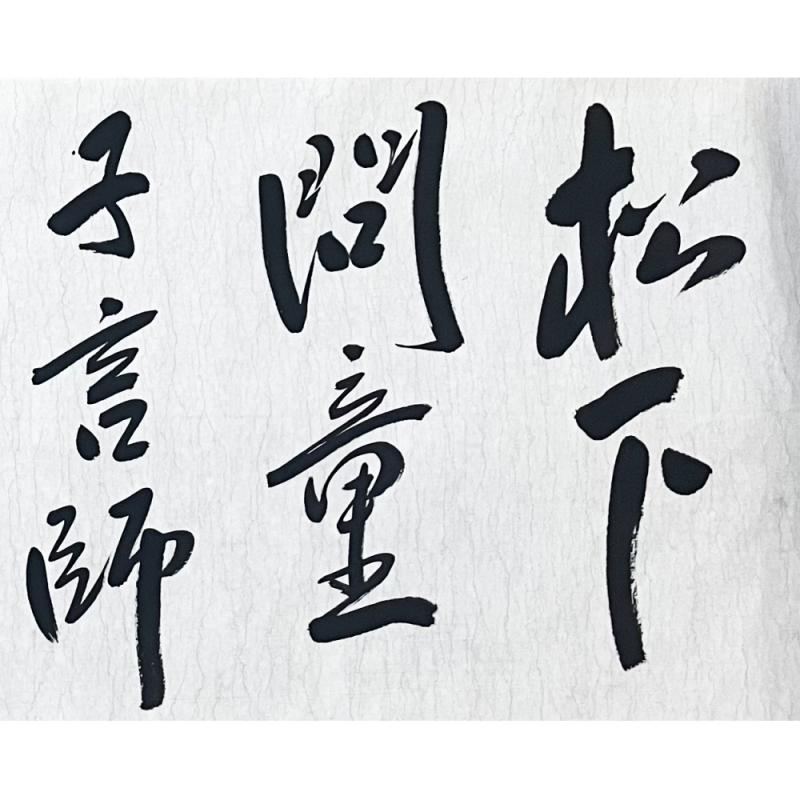 松下
問童
子言師